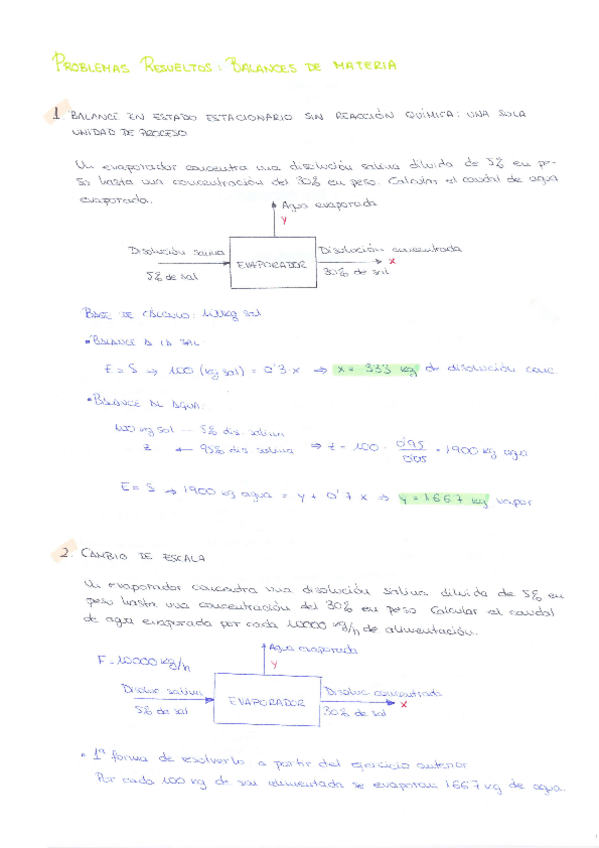 PROBLEMAS RESUELTOS: BALANCES DE MATERIA
1. BALANCE EN ESTADO ESTACIONARIO SIN REACCIÓN QUÍMICA: UNA SOLA
UNIDAD DE PROCESO
Un evaporador concentra una disolución salina diluida de 5% en pe-
so hasta una concentración del 30% en peso. Calcular el caudal de agua
evaporada.
Agua evaporada
y
Disolución salina
5% de sal
EVAPORADOR
Disolución concentrada
x
30% de sal
BASE DE CÁLCULO: 100kg sal
• BALANCE A LA SAL:
E = S → 100 (kg sal) = 0'3·x ⇒ x = 333 kg de disolución conc.
• BALANCE AL AGUA:
100 kg sol — 5% dis. salina
z ← 95% dis salina ⇒ z = 100 · 0'95/0'05 = 1900 kg agua
E = S → 1900 kg agua = y + 0'7 x ⇒ y = 1667 kg vapor
2. CAMBIO DE ESCALA
Un evaporador concentra una disolución salina diluida de 5% en
peso hasta una concentración del 30% en peso. Calcular el caudal
de agua evaporada por cada 10000 kg/h de alimentación.
F = 10000 kg/h
Agua evaporada
y
Disoluc salina
5% de sal
EVAPORADOR
Disoluc concentrada
x
30% de sal
• 1ª forma de resolverlo a partir del ejercicio anterior
Por cada 100 kg de sal alimentada se evaporan 1667 kg de agua.